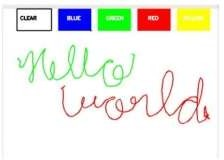 CLEAR BLUE GREEN RED YELLOW
Hello
world